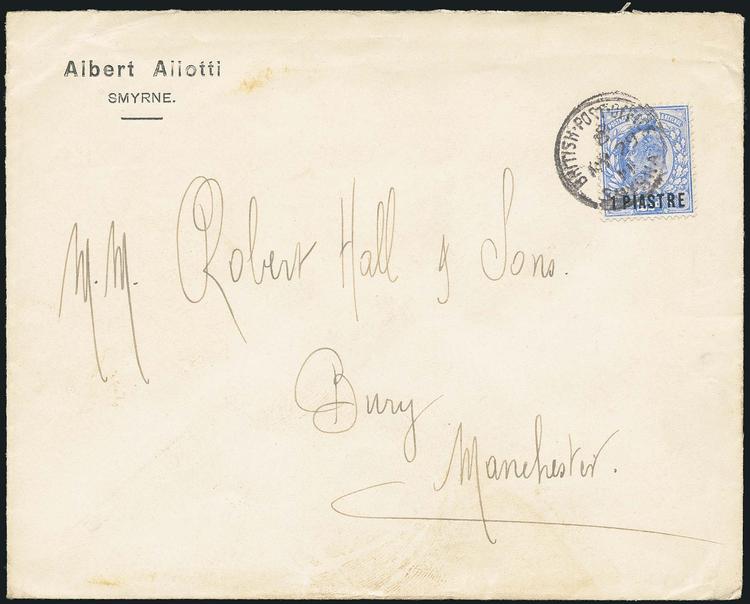 Albert Aliotti
SMYRNE.
BRITISH·POST·OFFICE
SMYRNA
1 PIASTRE
M.M. Robert Hall & Sons.
Bury
Manchester.